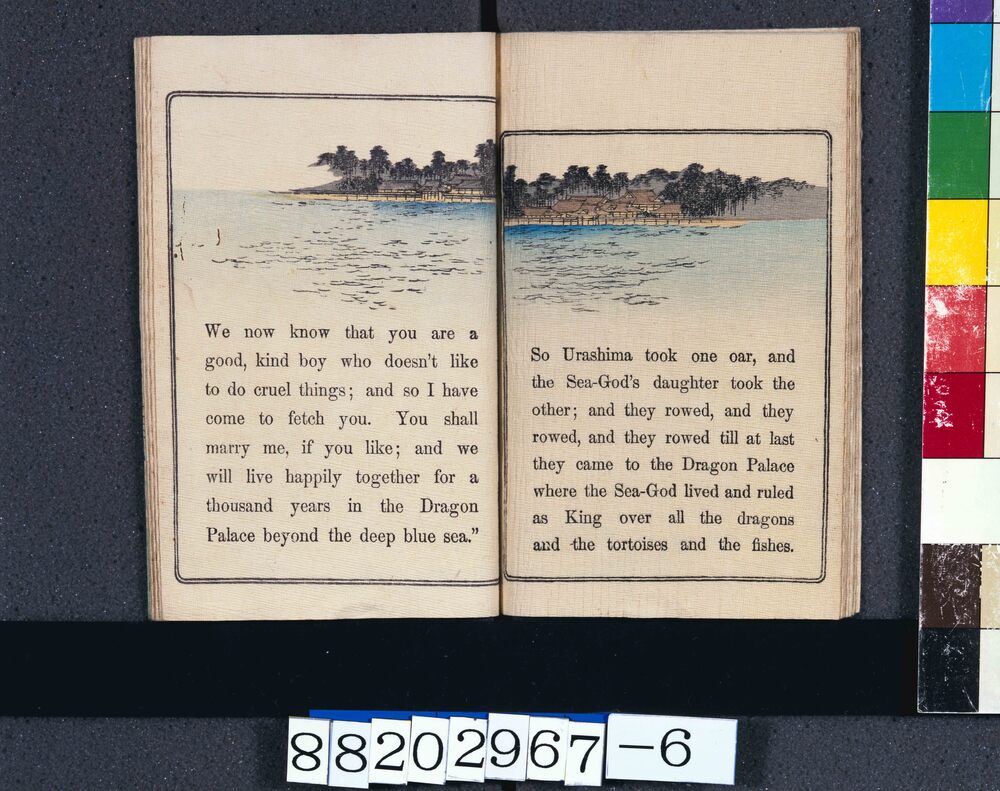 We now know that you are a
good, kind boy who doesn't like
to do cruel things; and so I have
come to fetch you. You shall
marry me, if you like; and we
will live happily together for a
thousand years in the Dragon
Palace beyond the deep blue sea."
So Urashima took one oar, and
the Sea-God's daughter took the
other; and they rowed, and they
rowed, and they rowed till at last
they came to the Dragon Palace
where the Sea-God lived and ruled
as King over all the dragons
and the tortoises and the fishes.
88202967-6